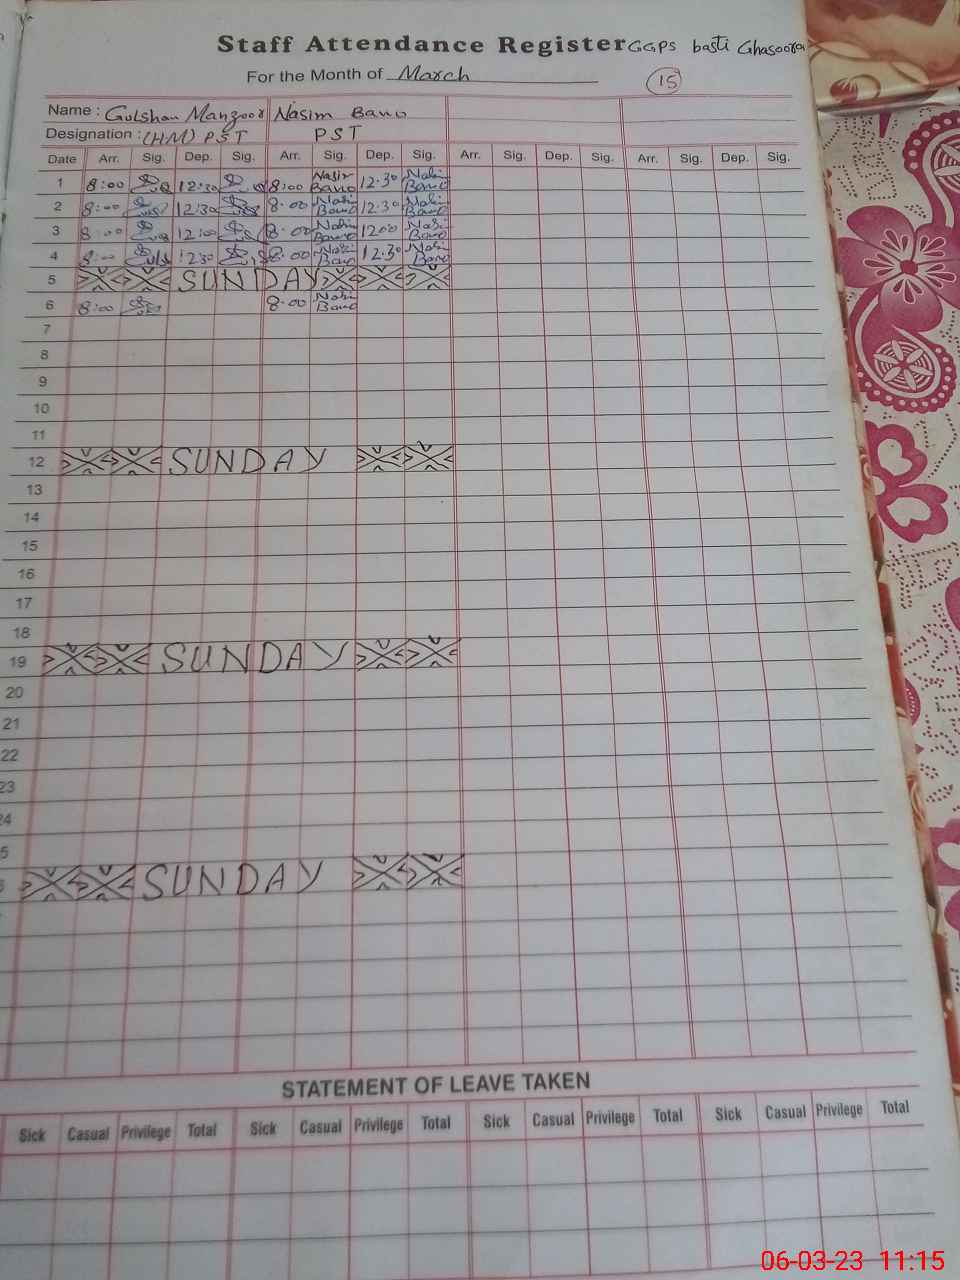 Staff Attendance Register GGPS basti Ghasoora
For the Month of March 15
Name : Gulshan Manzoor Nasim Bano
Designation : (HM) PST PST
Date Arr. Sig. Dep. Sig. Arr. Sig. Dep. Sig. Arr. Sig. Dep. Sig. Arr. Sig. Dep. Sig.
1 8:00 12:30 8:00 Nasim Bano 12.30 Nasim Bano
2 8:00 12:30 8.00 Nasim Bano 12.30 Nasim Bano
3 8:00 12:00 8.00 Nasim Bano 1200 Nasim Bano
4 8:00 1230 8.00 Nasim Bano 12.30 Nasim Bano
5 SUNDAY
6 8:00 8.00 Nasim Bano
7
8
9
10
11
12 SUNDAY
13
14
15
16
17
18
19 SUNDAY
20
21
22
23
24
5
SUNDAY
STATEMENT OF LEAVE TAKEN
Sick Casual Privilege Total Sick Casual Privilege Total Sick Casual Privilege Total Sick Casual Privilege Total
06-03-23 11:15